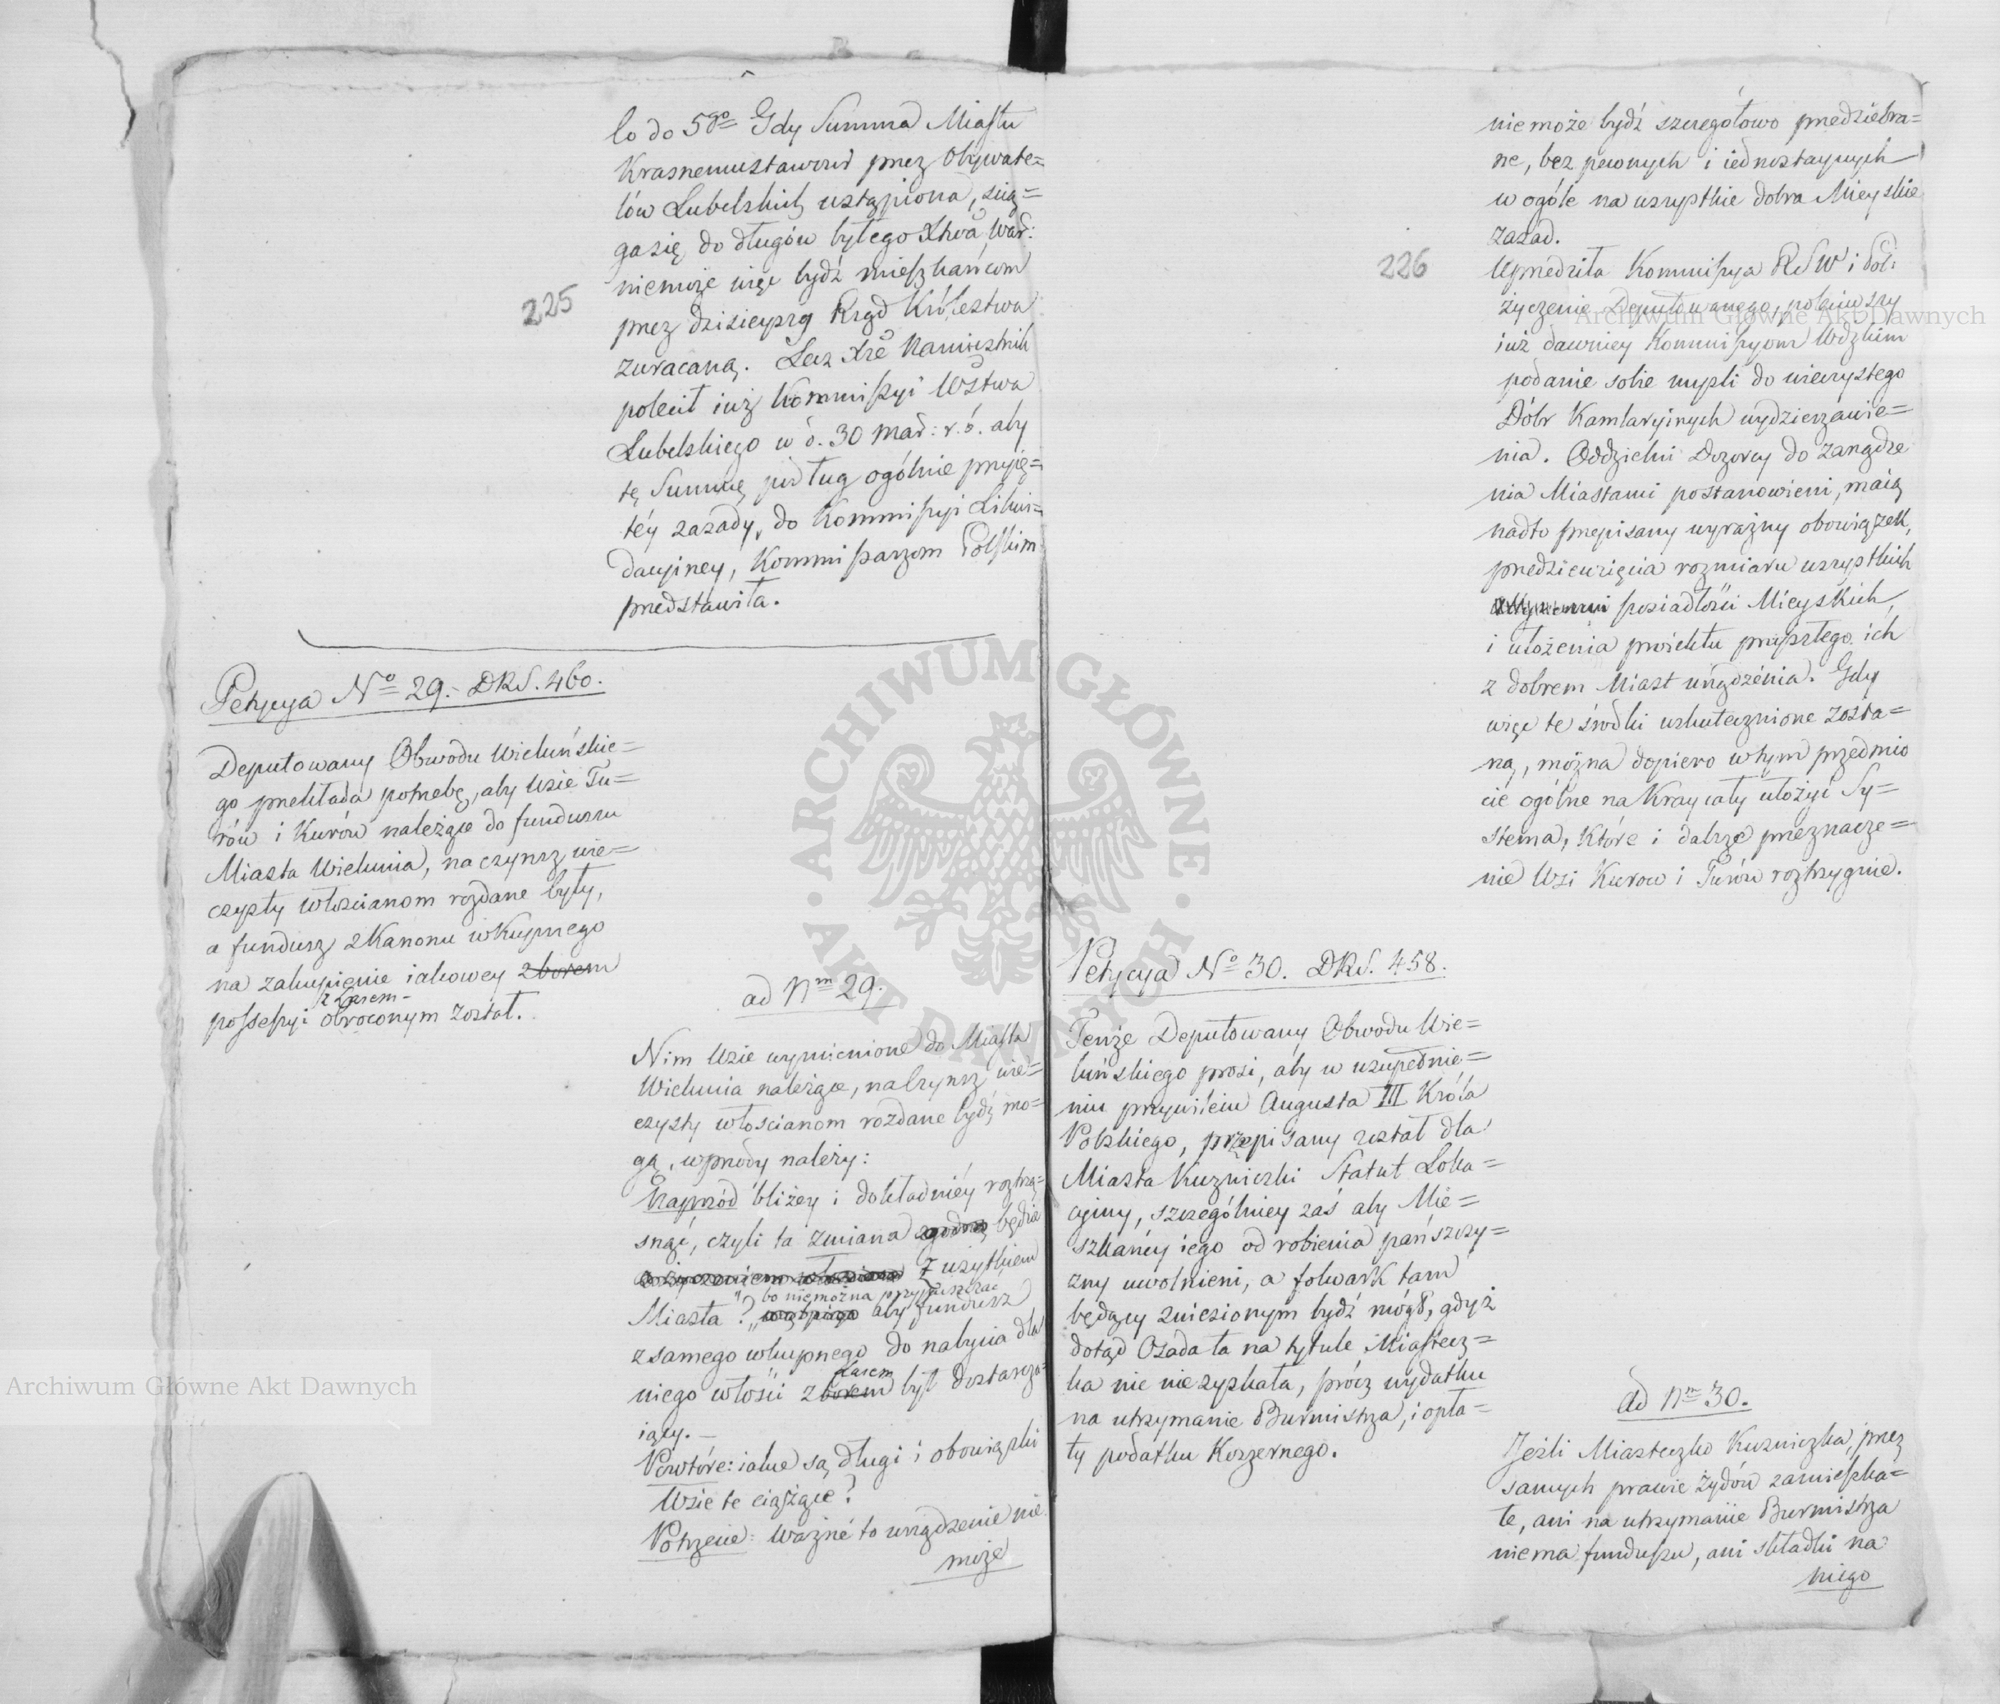 lo do 5go Gdy Summa Miastu
Krasnemustawowi przez Obywate=
lów Lubelskich ustąpiona, scią=
ga się do długów byłego Xtwa War:
niemoże więc bydź mieszkańcom
przez dzisieyszą Rząd Królestwa
zwracaną. Lecz Xże Namiestnik
polecił iuż Kommissyi Wdztwa
Lubelskiego w d. 30 Mar: r. b. aby
tę Summę podług ogólnie przyię=
téy zasady, do Kommissyi Likwi=
dacyiney, Kommissarzom Polskim
przedstawiła.
225
Petycya No 29. DRS. 460.
Deputowany Obwodu Wieluńskie=
go przekłada potrzebę, aby Wsie Tu=
rów i Kurów należące do funduszu
Miasta Wielunia, na czynsz wie=
czysty włoscianom rozdane były,
a fundusz z Kanonu wkupnego
na zakupienie iakowey z borem
z lasem
possessyi obroconym został.
ad Nm 29.
Nim Wsie wymienione do Miasta
Wielunia należące, na czynsz wie=
czysty włoscianom rozdane bydź mo=
gą, wprzódy należy:
Najprzód bliżey i dokładniéy roztrzą=
snąć, czyli ta zmiana zgodną będzie
z użytkiem
bo niemożna przypuszczać
Miasta? aby fundusz
z samego wkupnego do nabycia dla
lasem
niego włości z borem był dostarcza=
iący.
Powtóre: iakie są długi i obowiązki
Wsie te ciążące?
Potrzecie: Ważne to urządzenie nie
może
226
nie może bydź szczegółowo przedziebra=
ne, bez pewnych i iednostaynych
w ogóle na wszystkie dobra Mieyskie
zasad.
Uprzedziła Kommissya RSW i Pol:
życzenie Deputowanego, poleciwszy
iuż dawniey Kommissyom Wdzkim
podanie sobie mysli do wieczystego
Dóbr Kamlaryinych wydzierzawie=
nia. Oddzielni Dozorcy do zarządze
nia Miastami postanowieni, maią
nadto przepisany wyraźny obowiązek,
przedziewzięcia rozmiaru wszystkich
posiadłości Mieyskich,
i ułożenia proiektu przyszłego ich
z dobrem Miast urządzenia. Gdy
więc te środki uskutecznione zosta=
ną, można dopiero w tym przedmio
cie ogólne na Kray cały ułożyć Sy=
stema, które i dalsze przeznacze=
nie Wsi Kurow i Turów roztrzygnie.
Petycya No 30. DRS. 458.
Tenże Deputowany Obwodu Wie=
luńskiego prosi, aby w uzupełnie=
niu przywileiu Augusta III Króla
Polskiego, przepisany został dla
Miasta Kuzniczki Statut Loka=
cyiny, szczególniey zaś aby Mie=
szkańcy iego od robienia pańszczy=
zny uwolnieni, a folwark tam
będący zniesionym bydź mógł, gdyż
dotąd Osada ta na tytule Miastecz=
ka nic nie zyskała, prócz wydatku
na utrzymanie Burmistrza, i opła=
ty podatku Koszernego.
ad Nm 30.
Jeżli Miasteczko Kuzniczka, przez
samych prawie Żydów zamieszka=
łe, ani na utrzymanie Burmistrza
niema funduszu, ani składki na
niego
Archiwum Główne Akt Dawnych
Archiwum Główne Akt Dawnych
ARCHIWUM GŁÓWNE AKT DAWNYCH